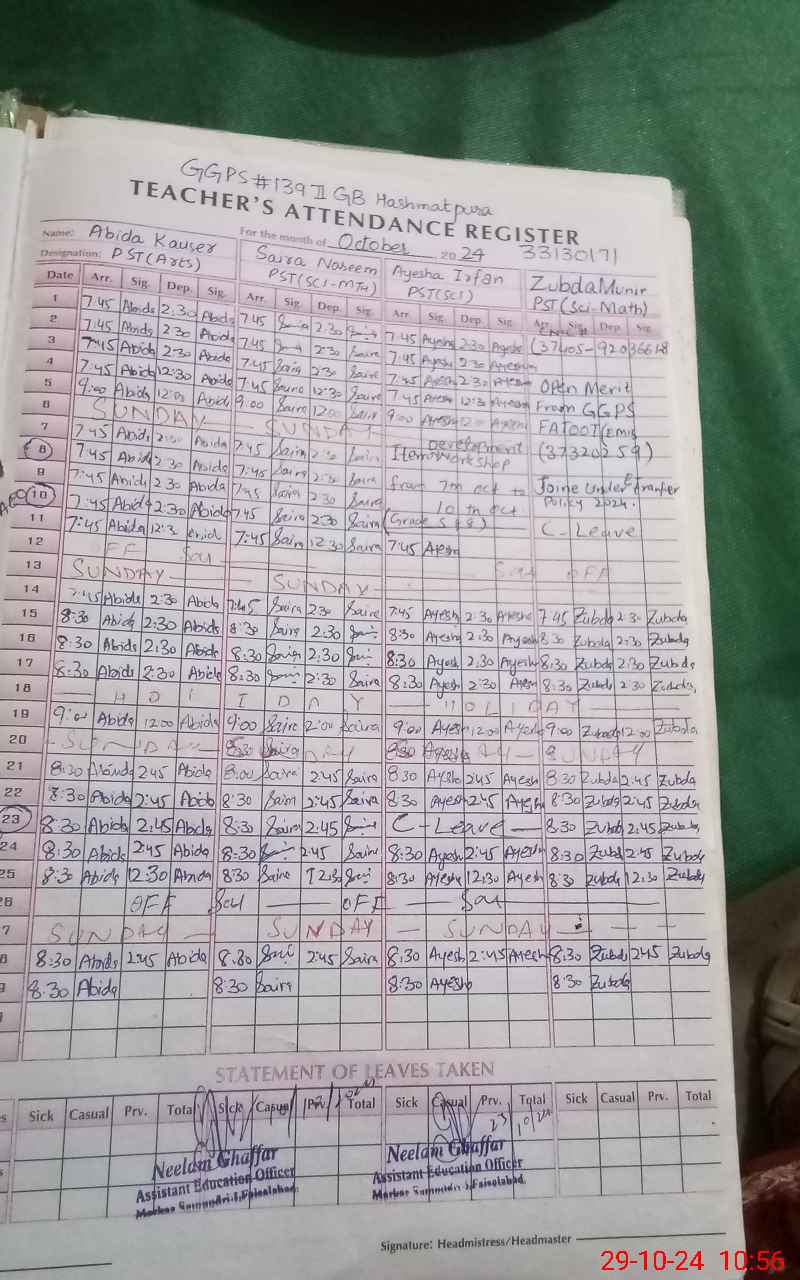 GGPS #139 II GB Hashmatpura
TEACHER'S ATTENDANCE REGISTER
Name: Abida Kauser For the month of October 2024 33130171
Designation: PST (Arts) Saira Naseem Ayesha Irfan Zubda Munir
PST (SCI-MTH) PST (SCI) PST (Sci-Math)
Date Arr. Sig. Dep. Sig. Arr. Sig. Dep. Sig. Arr. Sig. Dep. Sig. Sig. Dep. Sig.
1 7:45 Abida 2:30 Abida 7:45 2:30 7:45 Ayesh 2:30 Ayesha
2 7:45 Abida 2:30 Abida 7:45 2:30 Saira 7:45 Ayesh 2:30
3 7:45 Abida 2:30 Abida 7:45 Saira 2:30 Saira 7:45 Ayesh 2:30 Ayesh Open Merit
4 7:45 Abida 12:30 Abida 7:45 Saira 12:30 Saira 7:45 Ayesh 12:30 Ayesh From GGPS
5 9:00 Abida 12:00 Abida 9:00 Saira 12:00 Saira 9:00 Ayesh
6 SUNDAY SUNDAY (37320259)
7 7:45 Abida 2:30 Abida 7:45 Saira 2:30 Saira Item Development Workshop
8 7:45 Abida 2:30 Abida 7:45 Saira 2:30 Saira from 7th oct to Joine Under E Tranfer
9 7:45 Abida 2:30 Abida 7:45 Saira 2:30 Saira 10th oct Policy 2024.
10 7:45 Abida 2:30 Abida 7:45 Saira 2:30 Saira (Grade 5 & 8) C-Leave
11 7:45 Abida 7:45 Saira 12:30 Saira 7:45 Ayesh
12 OFF Sat Sat OFF
13 SUNDAY SUNDAY
14 7:45 Abida 2:30 Abida 7:45 Saira 2:30 Saira 7:45 Ayesh 2:30 Ayesha 7:45 Zubda 2:30 Zubda
15 8:30 Abida 2:30 Abida 8:30 Saira 2:30 8:30 Ayesh 2:30 Ayesh 8:30 Zubda 2:30 Zubda
16 8:30 Abida 2:30 Abida 8:30 Saira 2:30 8:30 Ayesh 2:30 Ayesh 8:30 Zubda 2:30 Zubda
17 8:30 Abida 2:30 Abida 8:30 2:30 Saira 8:30 Ayesh 2:30 Ayesh 8:30 Zubda 2:30 Zubda
18 HOLIDAY HOLIDAY
19 9:00 Abida 12:00 Abida 9:00 Saira Saira 9:00 Ayesh 12:00 Ayesh 9:00 Zubda 12:00 Zubda
20 SUNDAY 8:30 Saira 8:30 Ayesha SUNDAY
21 8:30 Abida 2:45 Abida 8:00 Saira 2:45 Saira 8:30 Ayesha 2:45 Ayesh 8:30 Zubda 2:45 Zubda
22 8:30 Abida 2:45 Abida 8:30 Saira 2:45 Saira 8:30 Ayesh 2:45 Ayesh 8:30 Zubda 2:45 Zubda
23 8:30 Abida 2:45 Abida 8:30 Saira 2:45 C-Leave 8:30 Zubda 2:45 Zubda
24 8:30 Abida 2:45 Abida 8:30 2:45 Saira 8:30 Ayesh 2:45 Ayesh 8:30 Zubda 2:45 Zubda
25 8:30 Abida 12:30 Abida 8:30 Saira 12:30 8:30 Ayesh 12:30 Ayesh 8:30 Zubda 12:30 Zubda
OFF Sat OFF Sat
SUNDAY SUNDAY SUNDAY
8:30 Abida 2:45 Abida 8:30 2:45 Saira 8:30 Ayesh 2:45 Ayesh 8:30 Zubda 2:45 Zubda
8:30 Abida 8:30 Saira 8:30 Ayesh 8:30 Zubda
STATEMENT OF LEAVES TAKEN
Sick Casual Prv. Total Sick Casual Prv. Total Sick Casual Prv. Total Sick Casual Prv. Total
Neelam Ghaffar Neelam Ghaffar
Assistant Education Officer Assistant Education Officer
Markaz Samundri-I, Faisalabad. Markaz Samundri-I, Faisalabad.
Signature: Headmistress/Headmaster
29-10-24 10:56